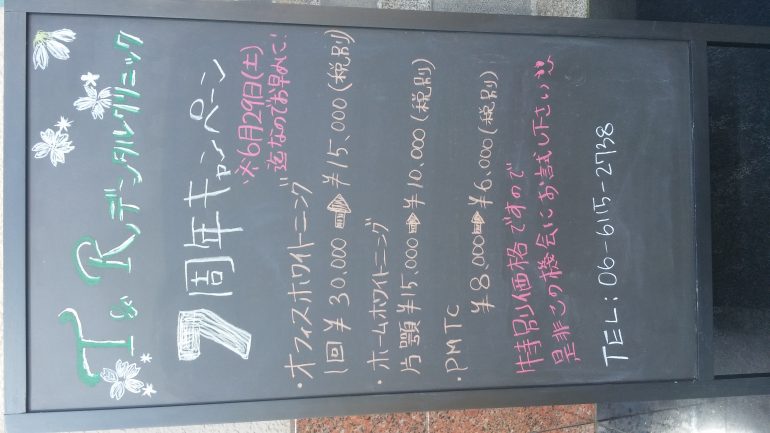 T&Rデンタルクリニック
7周年キャンペーン
※6月29日(土)
迄なのでお早めに!
・オフィスホワイトニング
1回 ¥30.000 ➡ ¥15.000(税別)
・ホームホワイトニング
片顎 ¥15.000 ➡ ¥10.000(税別)
・PMTC
¥8.000 ➡ ¥6.000(税別)
特別価格ですので
是非この機会にお試し下さい
TEL:06-6115-2738